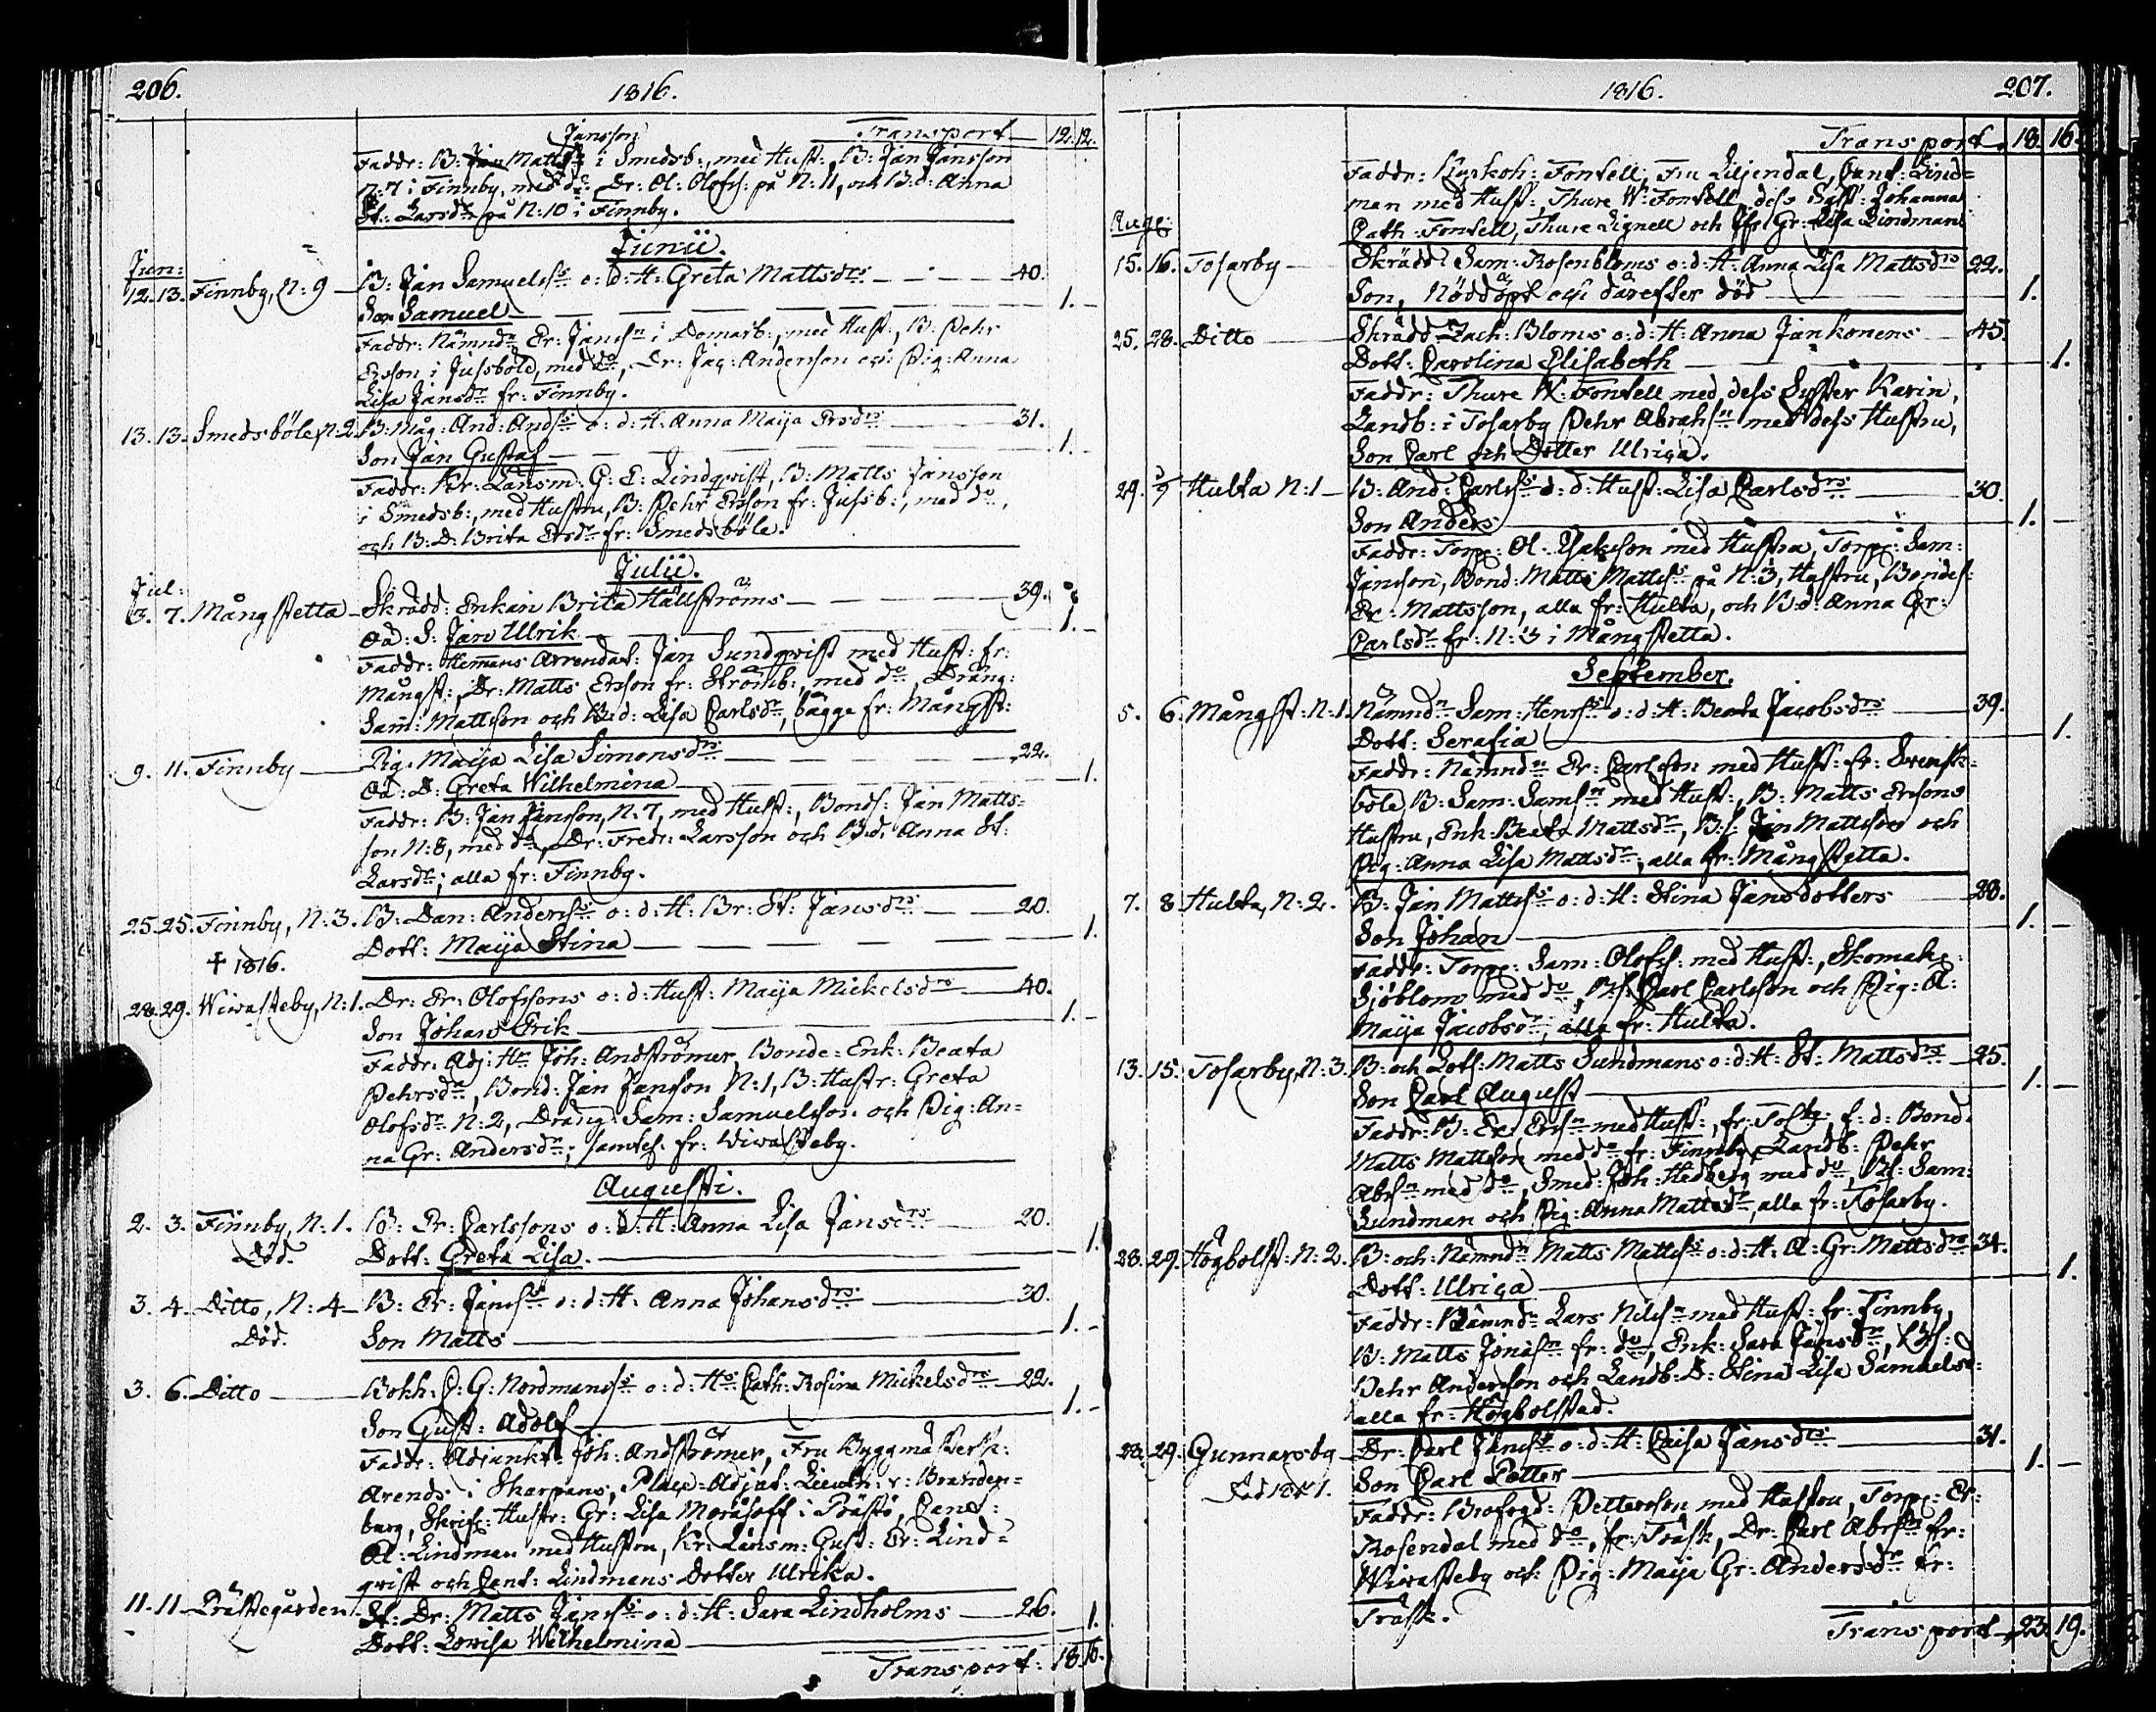 206. 1816.
Jansson Transport 12. 12.
Faddr: B: Jan Matts i Smedsb:, med Hust:, B: Jan Jansson
N:7 i Finnby, med do: Dr: Ol: Olofs: på N:11, och B:d: Anna
St: Larsdr på N:10 i Finnby.
Junii.
Jun:
12. 13. Finnby, N:9 B: Jan Samuelss: o: d: H: Greta Mattsdrs 40.
Son Samuel 1.
Faddr: Nämndn Er: Janssn i Domarb:, med Hust:, B: Pehr
Ersson i Jussböle, med do, Dr: Jac: Andersson och Pig: Anna
Lisa Jansdr fr: Finnby.
13. 13. Smedsböle, N:2 B: Måg: And: Andss: o: d: H: Anna Maija Ersdrs 31.
Son Jan Gustaf 1.
Faddr: Kr: Länsm: G: E: Lindqvist, B: Matts Jansson
i Smedsb:, med Hustru, B: Pehr Ersson fr: Jussb:, med do,
och B: D: Brita Ersdr fr: Smedsböle.
Julii.
Jul:
3. 7. Mångstetta Skrädd: Enkan Brita Hällströms 39.
Oä: S: Jan Ulrik 1.
Faddr: Hemans Arrendat: Jan Sundqvist med Hust: fr:
Mångst:, Dr: Matts Ersson fr: Strömb:, med do, Dräng:
Sam: Mattsson och B:d: Lisa Carlsdr, bägge fr: Mångst:
9. 11. Finnby Pig: Maija Lisa Simonsdrs 22.
Oä: D: Greta Wilhelmina 1.
Faddr: B: Jan Jansson, N:7, med Hust:, Bonds: Jan Matts=
son N:8, med do, Dr: Fredr: Larsson och B:d: Anna St:
Larsdr; alla fr: Finnby.
25. 25. Finnby, N:3. B: Dan: Anderss: o: d: H: Br: St: Jansdrs 20.
† 1816. Dott: Maija Stina 1.
28. 29. Wiwasteby, N:1. Dr: Er: Olofssons o: d: Hust: Maija Mickelsdrs 40.
Son Johan Erik 1.
Faddr: Adj: Hr Joh: Andströmer, Bonde: Enk: Beata
Pehrsdr, Bond: Jan Jansson N:1, B: Hustr: Greta
Olofsdr N:2, Dräng: Sam: Samuelsson och Pig: An=
na Gr: Andersdr; samtl: fr: Wiwasteby.
Augusti.
2. 3. Finnby, N:1. B: Er: Carlssons o: d: H: Anna Lisa Jansdrs 20.
Död. Dott: Greta Lisa. 1.
3. 4. Ditto, N:4 B: Er: Janss: o: d: H: Anna Johansdrs 30.
Död. Son Matts 1.
3. 6. Ditto Bokh: C: G: Nordmanss o: d: Hs: Cath: Rosina Mickelsdrs 22.
Son Gust: Adolf 1.
Faddr: Adjunkt: Joh: Andströmer, Fru Byggmästersk:
Arends i Skarpans, Place-Adjut: Lieutn: v: Branden=
burg, Skrifv: Hustr: Gr: Lisa Moråsoff i Prästö, Cant:
A: Lindman med Hustru, Kr: Länsm: Gust: Er: Lind=
qvist och Cant: Lindmans Dotter Ulrika.
11. 11. Prästegården St: Dr: Matts Janss: o: d: H: Sara Lindholms 26.
Dott: Lovisa Wilhelmina 1.
Transport: 18. 16.
1816. 207.
Transport. 18. 16.
Faddr: Kyrkoh: Fontell, Fru Liljendal, Cant: Lind=
man med Hust:, Thure W: Fontell, dess Syst: Johanna
Cath: Fontell, Thure Lignell och Jfr Gr: Lisa Lindman
Aug:
15. 16. Tosarby Skrädd: Sam: Rosenbloms o: d: H: Anna Lisa Mattsdrs 22.
Son, Nöddöpt och därefter död 1.
25. 28. Ditto Skrädd: Zach: Bloms o: d: H: Anna Jankonens 45.
Dott: Carolina Elisabeth 1.
Faddr: Thure W: Fontell med dess Syster Karin,
Landb: i Tosarby Pehr Abrahsn med dess Hustru,
Son Carl och Dotter Ulrica.
29. 1/9 Hulta N:1 B: And: Carlss: o: d: Hust: Lisa Carlsdrs 30.
Son Anders 1.
Faddr: Torp: Ol: Isaksson med Hustru, Torp: Sam:
Jansson, Bond: Matts Mattss: på N:3, Hustru, Bondes:
Er: Mattsson, alla fr: Hulta, och B:d: Anna Gr:
Carlsdr fr: N:3 i Mångstetta.
September.
5. 6. Mångst: N:1. Nämndn Sam: Henrss: o: d: H: Beata Jacobsdrs 39.
Dott: Serafia 1.
Faddr: Nämndn Er: Carlsson med Hust: fr: Svensk=
böle, B: Sam: Samsn med Hust:, B: Matts Erssons
Hustru, Enk: Beata Mattsdr, B:s: Jan Mattsson och
Pig: Anna Lisa Mattsdr, alla fr: Mångstetta.
7. 8 Hulta, N:2. B: Jan Mattss: o: d: H: Stina Jansdotters 28.
Son Johan 1.
Faddr: Torp: Sam: Olofs: med Hust:, Skomak:
Sjöblom med do, B:s: Carl Carlsson och Pig: A:
Maija Jacobsdr, alla fr: Hulta.
13. 15. Tosarby, N:3. B: och Lots: Matts Sundmans o: d: H: St: Mattsdrs 25.
Son Carl August 1.
Faddr: B: Er: Erssn med Hust:, fr: Tosby, f: d: Bond:
Matts Mattsson med do fr: Finnby, Landb: Pehr
Abrsn med do, Smed: Joh: Hedberg med do, B:s: Sam:
Sundman och Pig: Anna Mattsdr, alla fr: Tosarby.
28. 29. Högbolst: N:2. B: och Nämndn Matts Mattss: o: d: H: A: Gr: Mattsdrs 34.
Dott: Ulrica 1.
Faddr: Nämndn Lars Nilssn med Hust: fr: Finnby,
B: Matts Jonassn fr: do, Enk: Sara Jansdr, B:s:
Pehr Andersson och Landb: D: Stina Lisa Samuelsd:
alla fr: Högbolstad.
23. 29. Gunnarsby Dr: Carl Janss: o: d: H: Caisa Jansdrs 31.
Son Carl Petter 1.
Faddr: Brofogd: Pettersson med Hustru, Torp: Er:
Rosendal med do, fr: Träsk, Dr: Carl Abrsn fr:
Wiwasteby och Pig: Maija Gr: Andersdr fr:
Träsk.
Transport 23. 19.